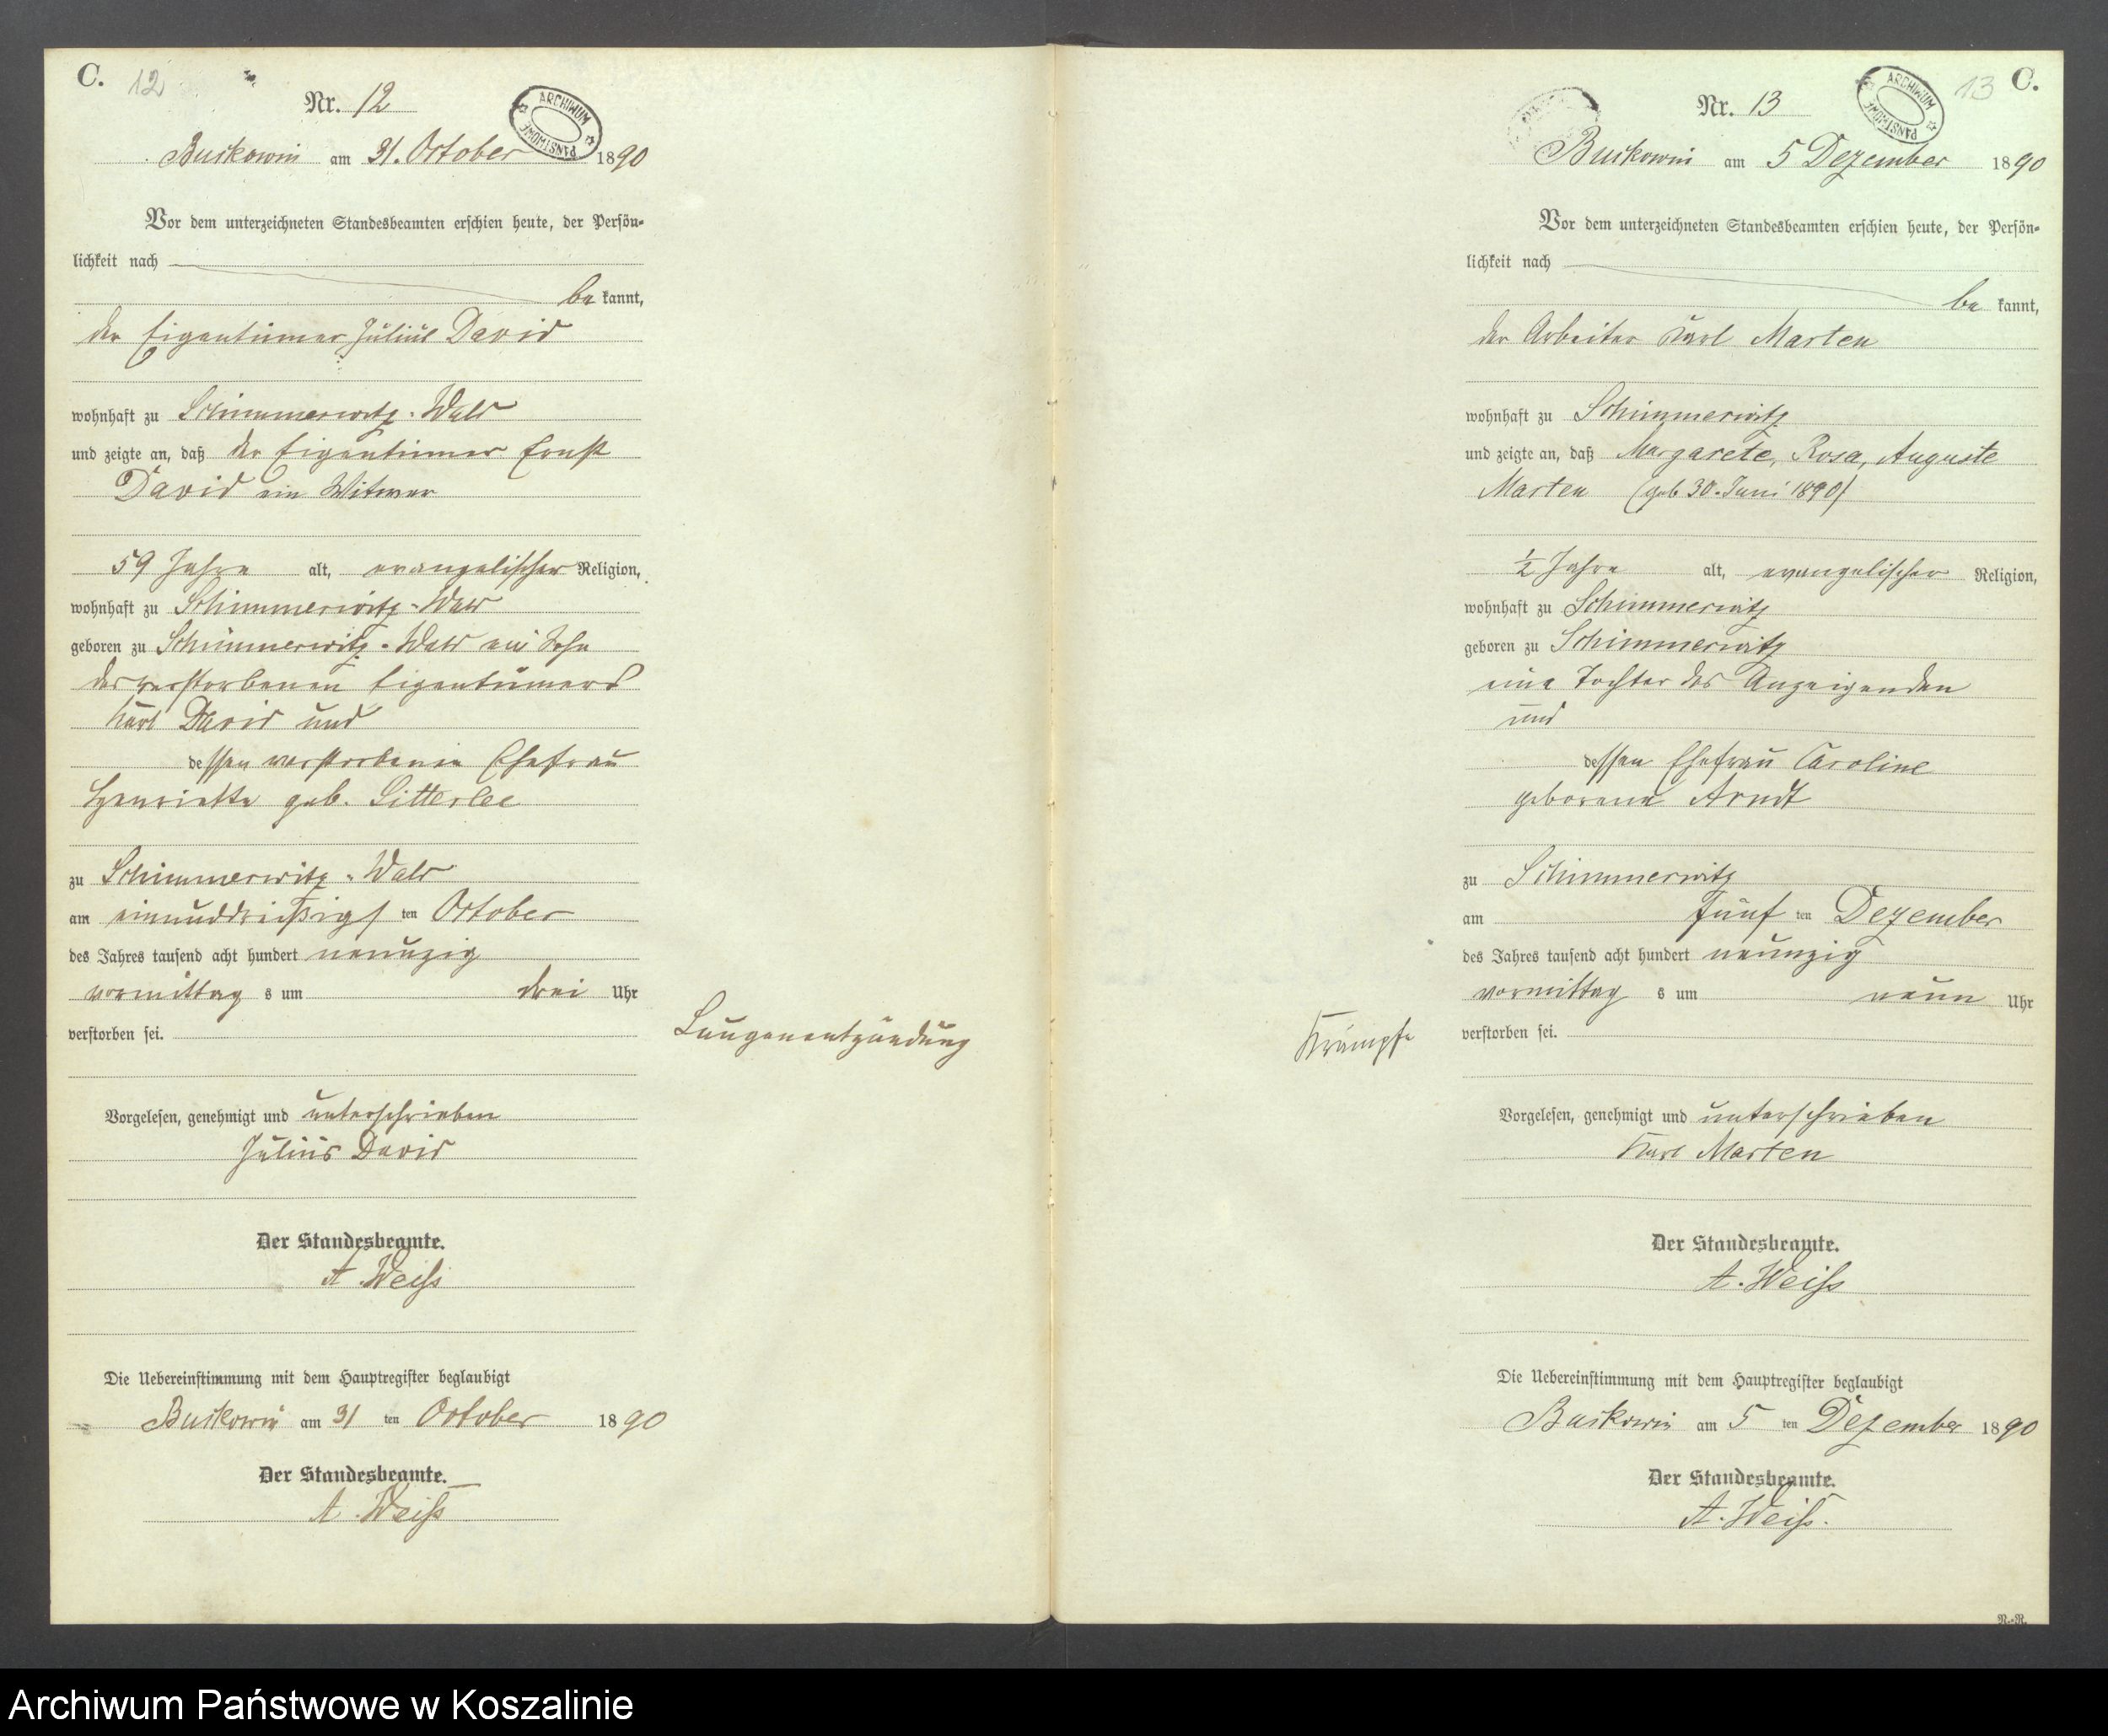 C.
12
ARCHIWUM PAŃSTWOWE
Nr. 12
Buckowin am 31. October 1890
Vor dem unterzeichneten Standesbeamten erschien heute, der Persön-
lichkeit nach
be kannt,
der Eigentümer Julius David
wohnhaft zu Schimmerwitz-Wald
und zeigte an, daß der Eigentümer Ernst
David ein Witwer
59 Jahre alt, evangelischer Religion,
wohnhaft zu Schimmerwitz-Wald
geboren zu Schimmerwitz-Wald ein Sohn
des verstorbenen Eigentümers
Karl David und
dessen verstorbenen Ehefrau
Henriette geb.
zu Schimmerwitz-Wald
am einunddreißigs ten October
des Jahres tausend acht hundert neunzig
vormittag s um drei Uhr
verstorben sei.
Lungenentzündung
Vorgelesen, genehmigt und unterschrieben
Julius David
Der Standesbeamte.
A. Weiß
Die Uebereinstimmung mit dem Hauptregister beglaubigt
Buckowin am 31 ten October 1890
Der Standesbeamte.
A. Weiß
13
C.
ARCHIWUM PAŃSTWOWE
Nr. 13
Buckowin am 5 Dezember 1890
Vor dem unterzeichneten Standesbeamten erschien heute, der Persön-
lichkeit nach
be kannt,
der Arbeiter Karl Marten
wohnhaft zu Schimmerwitz
und zeigte an, daß Margarete, Rosa, Auguste
Marten (geb 30. Juni 1890)
½ Jahre alt, evangelischer Religion,
wohnhaft zu Schimmerwitz
geboren zu Schimmerwitz
eine Tochter des Anzeigenden
und
dessen Ehefrau Caroline
geborene Arndt
zu Schimmerwitz
am fünf ten Dezember
des Jahres tausend acht hundert neunzig
vormittag s um neun Uhr
verstorben sei.
Krämpfe
Vorgelesen, genehmigt und unterschrieben
Karl Marten
Der Standesbeamte.
A. Weiß
Die Uebereinstimmung mit dem Hauptregister beglaubigt
Buckowin am 5 ten Dezember 1890
Der Standesbeamte.
A. Weiß.
R.-R.
Archiwum Państwowe w Koszalinie